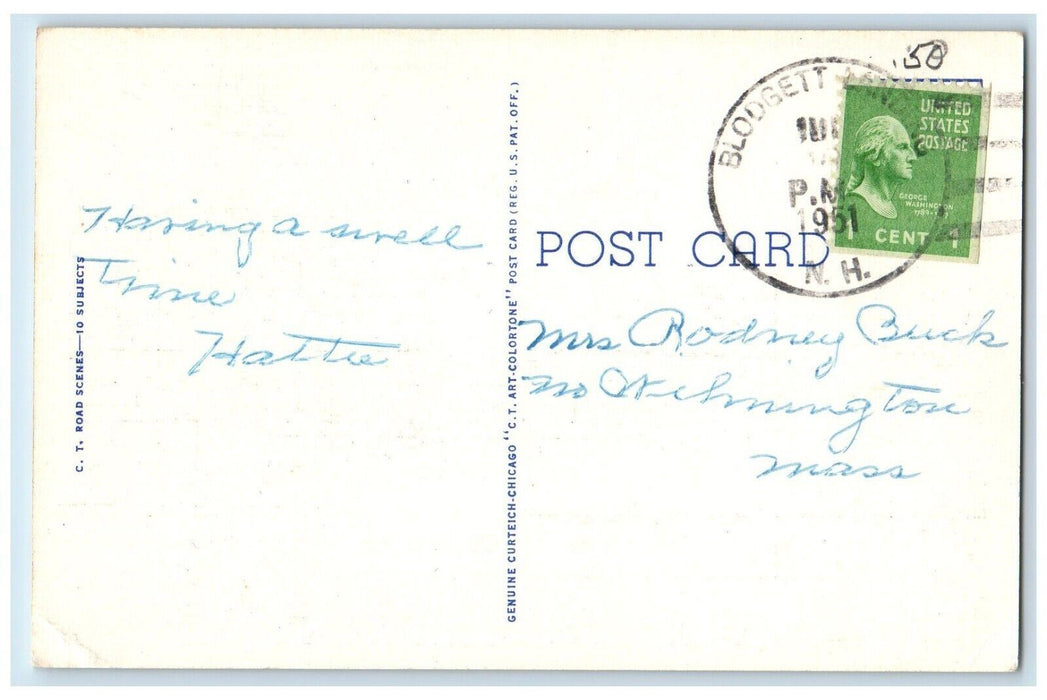 Having a swell
Time
Hattie
C. T. ROAD SCENES—10 SUBJECTS
GENUINE CURTEICH-CHICAGO "C.T. ART-COLORTONE" POST CARD (REG. U.S. PAT. OFF.)
POST CARD
.50
BLODGETT
P.M.
1951
N. H.
UNITED
STATES
POSTAGE
GEORGE
WASHINGTON
1 CENT 1
Mrs Rodney Buck
No Wilmington
Mass